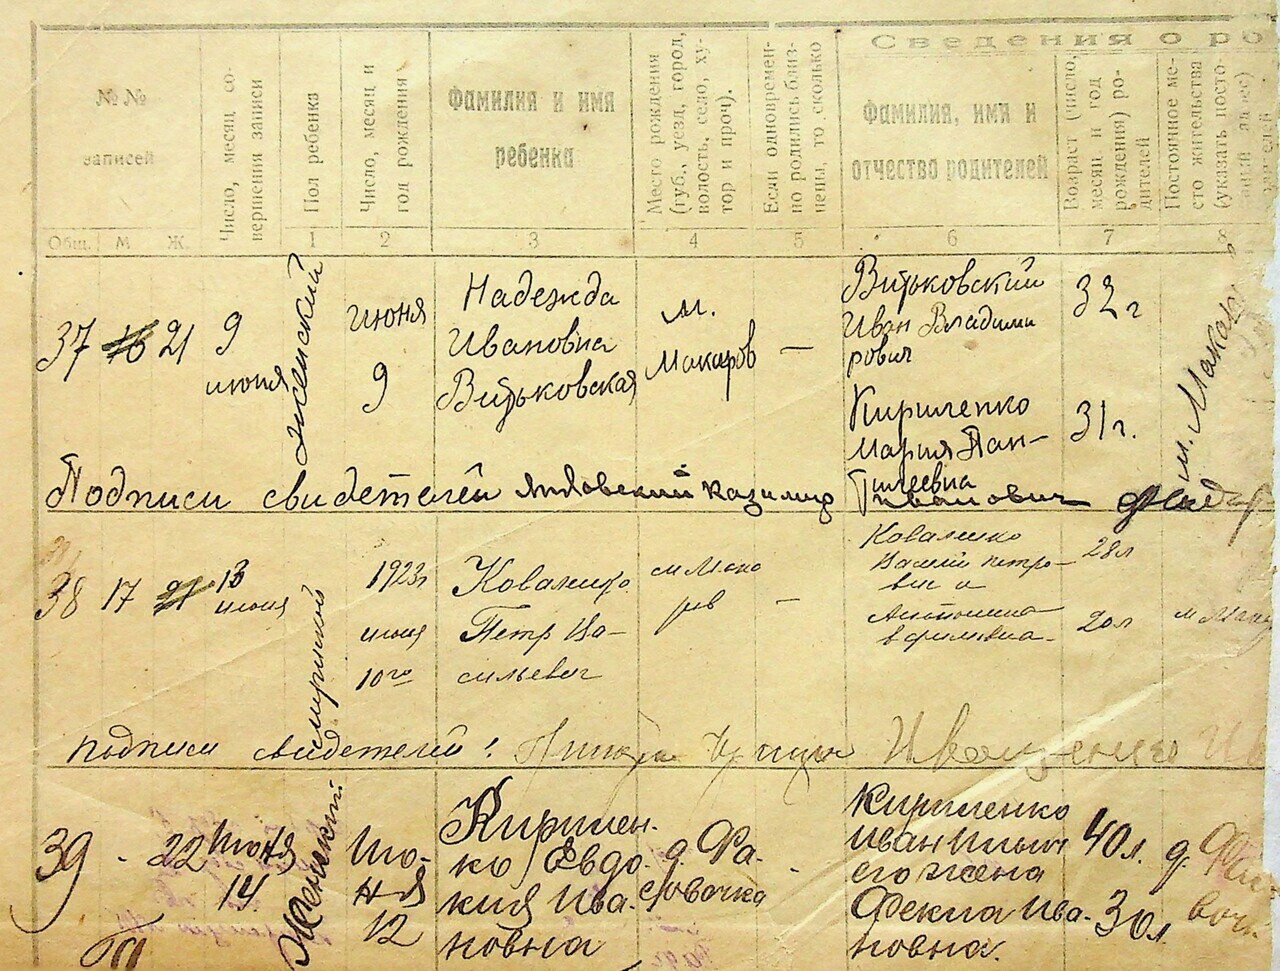 Сведения о ро
№№
записей
Число, месяц со-
вершения записи
Пол ребенка
Число, месяц и
год рождения
Фамилия и имя
ребенка
Место рождения
(губ., уезд, город,
волость, село, ху-
тор и проч).
Если одновремен-
но родились близ-
нецы, то сколько
Фамилия, имя и
отчество родителей
Возраст (число,
месяц и год
рождения) ро-
дителей
Постоянное ме-
сто жительства
(указать посто-
Общ. М Ж. 1 2 3 4 5 6 7 8
37 16 21
9
июня
женский
июня
9
Надежда
Ивановна
Витьковская
м.
Макаров
—
Витьковский
Иван Владими
рович
32 г
Кириленко
Мария Пан-
тилеевна
31 г.
м. Макар
Подписи свидетелей Казимир
Иванович
38 17 21
13
июня
мужской
1923 г
июня
10го
Коваленко
Петр Ва-
сильевич
м Мака
ров
—
Коваленко
Василий Петро-
вич и
28 л
Антонина
20 л
м Мака
подписи свидетелей:
39 - 22
Июня
14
Женский
Ию-
ня
12
Кирилен-
ко Евдо-
кия Ива-
новна
д. Фа-
совочка
-
Кириленко
Иван Ильич
его жена
Фекла Ива-
новна.
40 л.
30 л.
д. Фа
воч